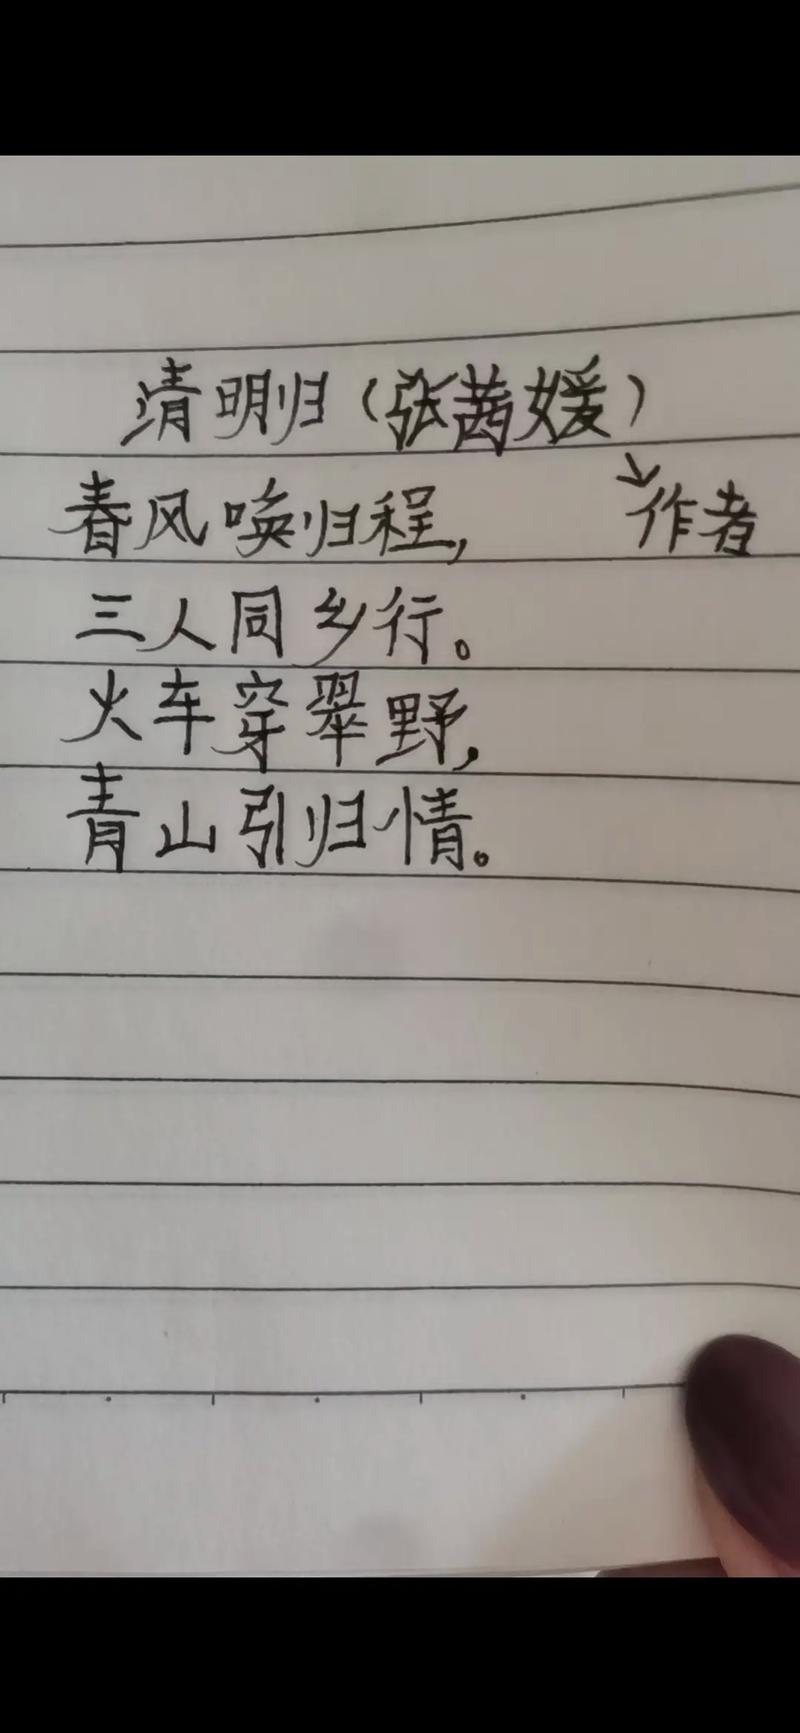 清明归（张茜媛）
↘作者
春风唤归程，
三人同乡行。
火车穿翠野，
青山引归情。